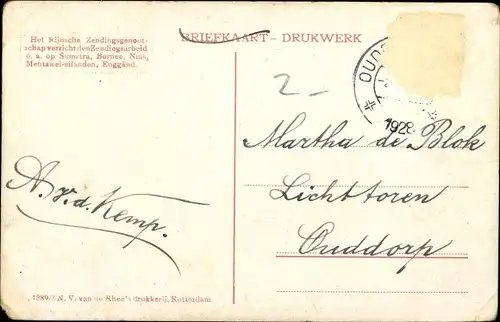 Het Rijnsche Zendingsgenoot-
schap verricht den Zendingsarbeid
o. a. op Sumatra, Borneo, Nias,
Mentawei-eilanden, Enggano.
BRIEFKAART - DRUKWERK
OUD
1928
2-
Martha de Blok
Lichttoren
Ouddorp
A. v. d. Kemp.
N. V. van de Rhee's drukkerij, Rotterdam